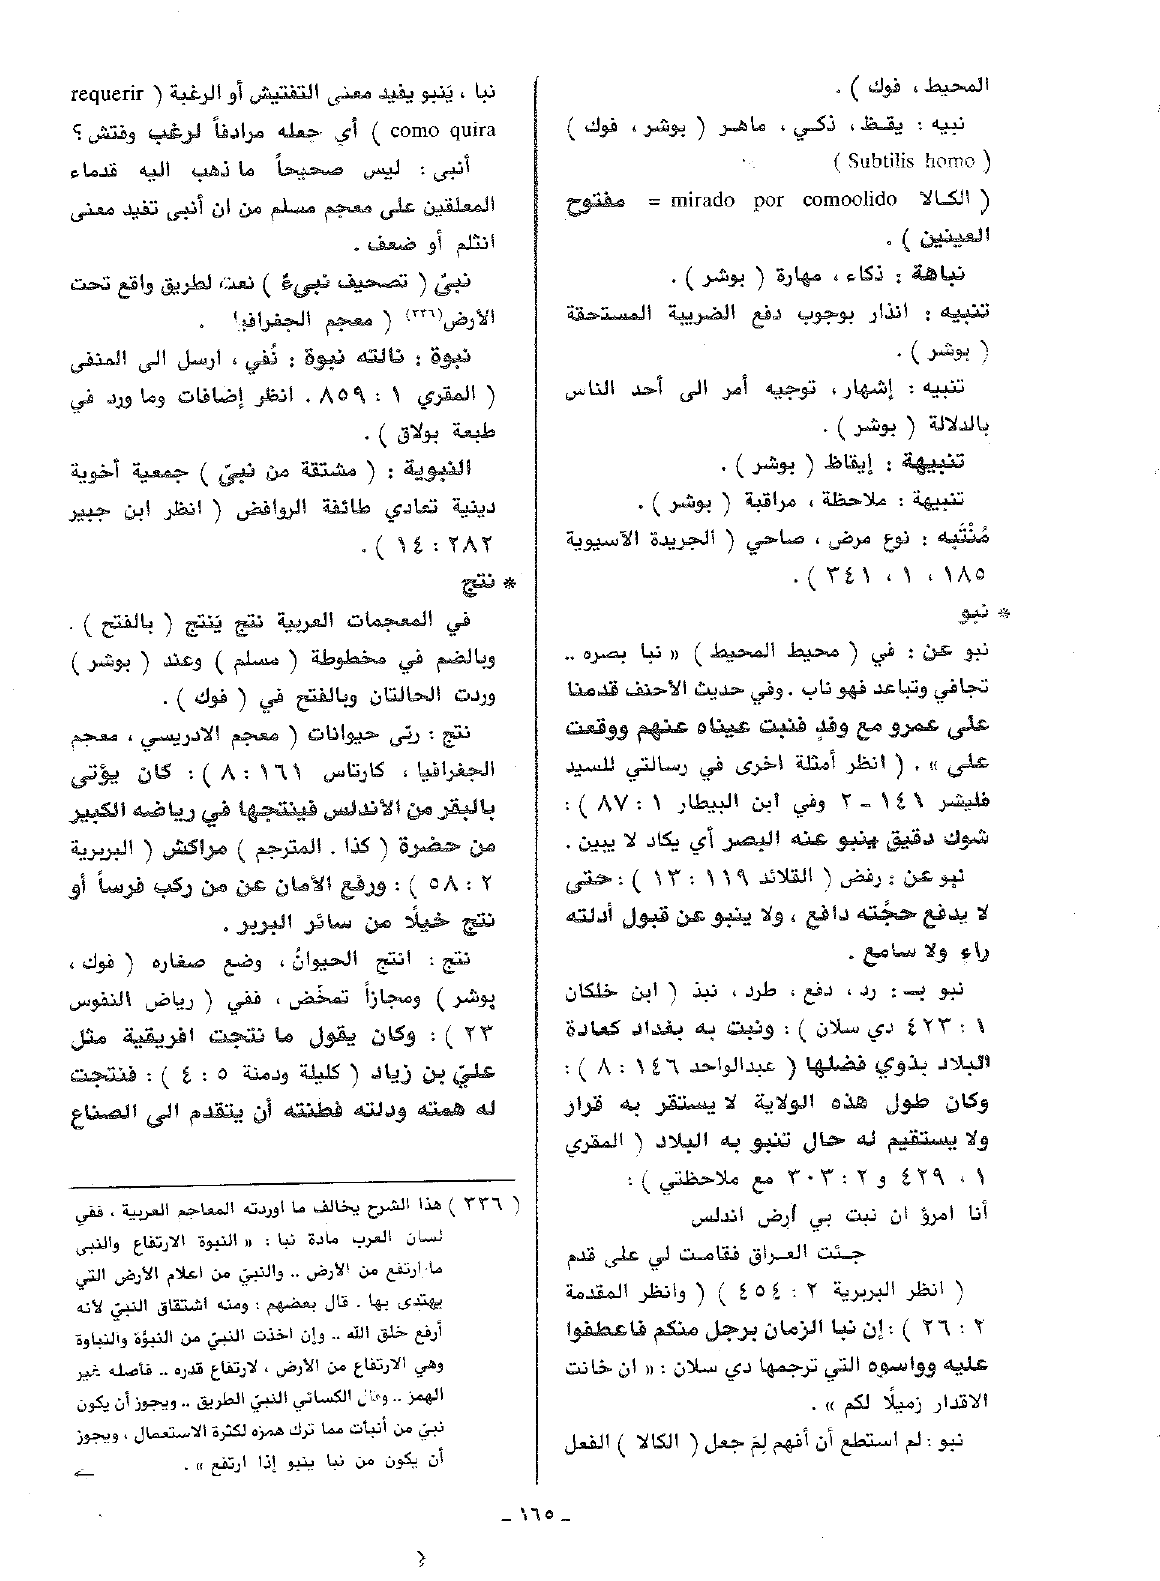 المحيط ، فوك ) .
نبيه : يقظ ، ذكي ، ماهر ( بوشر ، فوك )
( Subtilis homo )
( الكالا mirado por comoolido = مفتوح
العينين ) .
نباهة : ذكاء ، مهارة ( بوشر ) .
تنبيه : انذار بوجوب دفع الضريبة المستحقة
( بوشر ) .
تنبيه : إشهار ، توجيه أمر الى أحد الناس
بالدلالة ( بوشر ) .
تنبيهة : إيقاظ ( بوشر ) .
تنبيهة : ملاحظة ، مراقبة ( بوشر ) .
مُنْتَبِه : نوع مرض ، صاحي ( الجريدة الآسيوية
١٨٥ ، ١ ، ٣٤١ ) .
* نبو
نبو عن : في ( محيط المحيط ) « نبا بصره ..
تجافي وتباعد فهو ناب . وفي حديث الأحنف قدمنا
على عمرو مع وفدٍ فنبت عيناه عنهم ووقعت
على » . ( انظر أمثلة اخرى في رسالتي للسيد
فليشر ١٤٦ - ٢ وفي ابن البيطار ١ : ٨٧ ) :
شوك دقيق ينبو عنه البصر أي يكاد لا يبين .
نبو عن : رفض ( القلائد ١١٩ : ١٣ ) : حتى
لا يدفع حجَّته دافع ، ولا ينبو عن قبول أدلته
راء ولا سامع .
نبو بـ : رد ، دفع ، طرد ، نبذ ( ابن خلكان
١ : ٤٢٣ دي سلان ) : ونبت به بغداد كعادة
البلاد بذوي فضلها ( عبدالواحد ١٤٦ : ٨ ) :
وكان طول هذه الولاية لا يستقر به قرار
ولا يستقيم له حال تنبو به البلاد ( المقري
١ ، ٤٢٩ و ٢ : ٣٠٣ مع ملاحظتي ) :
أنا امرؤ ان نبت بي أرض اندلس
جئت العراق فقامت لي على قدم
( انظر البربرية ٢ : ٤٥٤ ) ( وانظر المقدمة
٢ : ٢٦ ) : إن نبا الزمان برجل منكم فاعطفوا
عليه وواسوه التي ترجمها دي سلان : « ان خانت
الاقدار زميلًا لكم » .
نبو : لم استطع أن أفهم لِمَ جعل ( الكالا ) الفعل
نبا ، يَنبو يفيد معنى التفتيش أو الرغبة ( requerir
como quira ) أي جعله مرادفاً لرغب وفتش ؟
أنبى : ليس صحيحاً ما ذهب اليه قدماء
المعلقين على معجم مسلم من ان أنبى تفيد معنى
انثلم أو ضعف .
نبيّ ( تصحيف نبيءٌ ) نعت لطريق واقع تحت
الأرض(٣٣٦) ( معجم الجغرافيا .
نبوة : نالته نبوة : نُفي ، ارسل الى المنفى
( المقري ١ : ٨٥٩ . انظر إضافات وما ورد في
طبعة بولاق ) .
النبوية : ( مشتقة من نبيّ ) جمعية أخوية
دينية تعادي طائفة الروافض ( انظر ابن جبير
٢٨٢ : ١٤ ) .
* نتج
في المعجمات العربية نتج يَنتج ( بالفتح ) .
وبالضم في مخطوطة ( مسلم ) وعند ( بوشر )
وردت الحالتان وبالفتح في ( فوك ) .
نتج : ربّى حيوانات ( معجم الادريسي ، معجم
الجغرافيا ، كارتاس ١٦١ : ٨ ) : كان يؤتى
بالبقر من الأندلس فينتجها في رياضه الكبير
من حضرة ( كذا . المترجم ) مراكش ( البربرية
٢ : ٥٨ ) : ورفع الأمان عن من ركب فرساً أو
نتج خيلًا من سائر البربر .
نتج : انتج الحيوانُ ، وضع صغاره ( فوك ،
بوشر ) ومجازاً تمخّض ، ففي ( رياض النفوس
٢٣ ) : وكان يقول ما نتجت افريقية مثل
عليّ بن زياد ( كليلة ودمنة ٥ : ٤ ) : فنتجت
له همته ودلته فطنته أن يتقدم الى الصناع
( ٣٣٦ ) هذا الشرح يخالف ما اوردته المعاجم العربية ، ففي
لسان العرب مادة نبا : « النبوة الارتفاع والنبي
ما ارتفع من الأرض .. والنبيّ من اعلام الأرض التي
يهتدى بها . قال بعضهم : ومنه اشتقاق النبيّ لأنه
أرفع خلق الله .. وإن اخذت النبيّ من النبؤة والنباوة
وهي الارتفاع من الأرض ، لارتفاع قدره .. فأصله غير
الهمز .. وقال الكسائي النبيّ الطريق .. ويجوز أن يكون
نبيّ من أنبأت مما ترك همزه لكثرة الاستعمال ، ويجوز
أن يكون من نبا ينبو إذا ارتفع » .
ـ ١٦٥ ـ